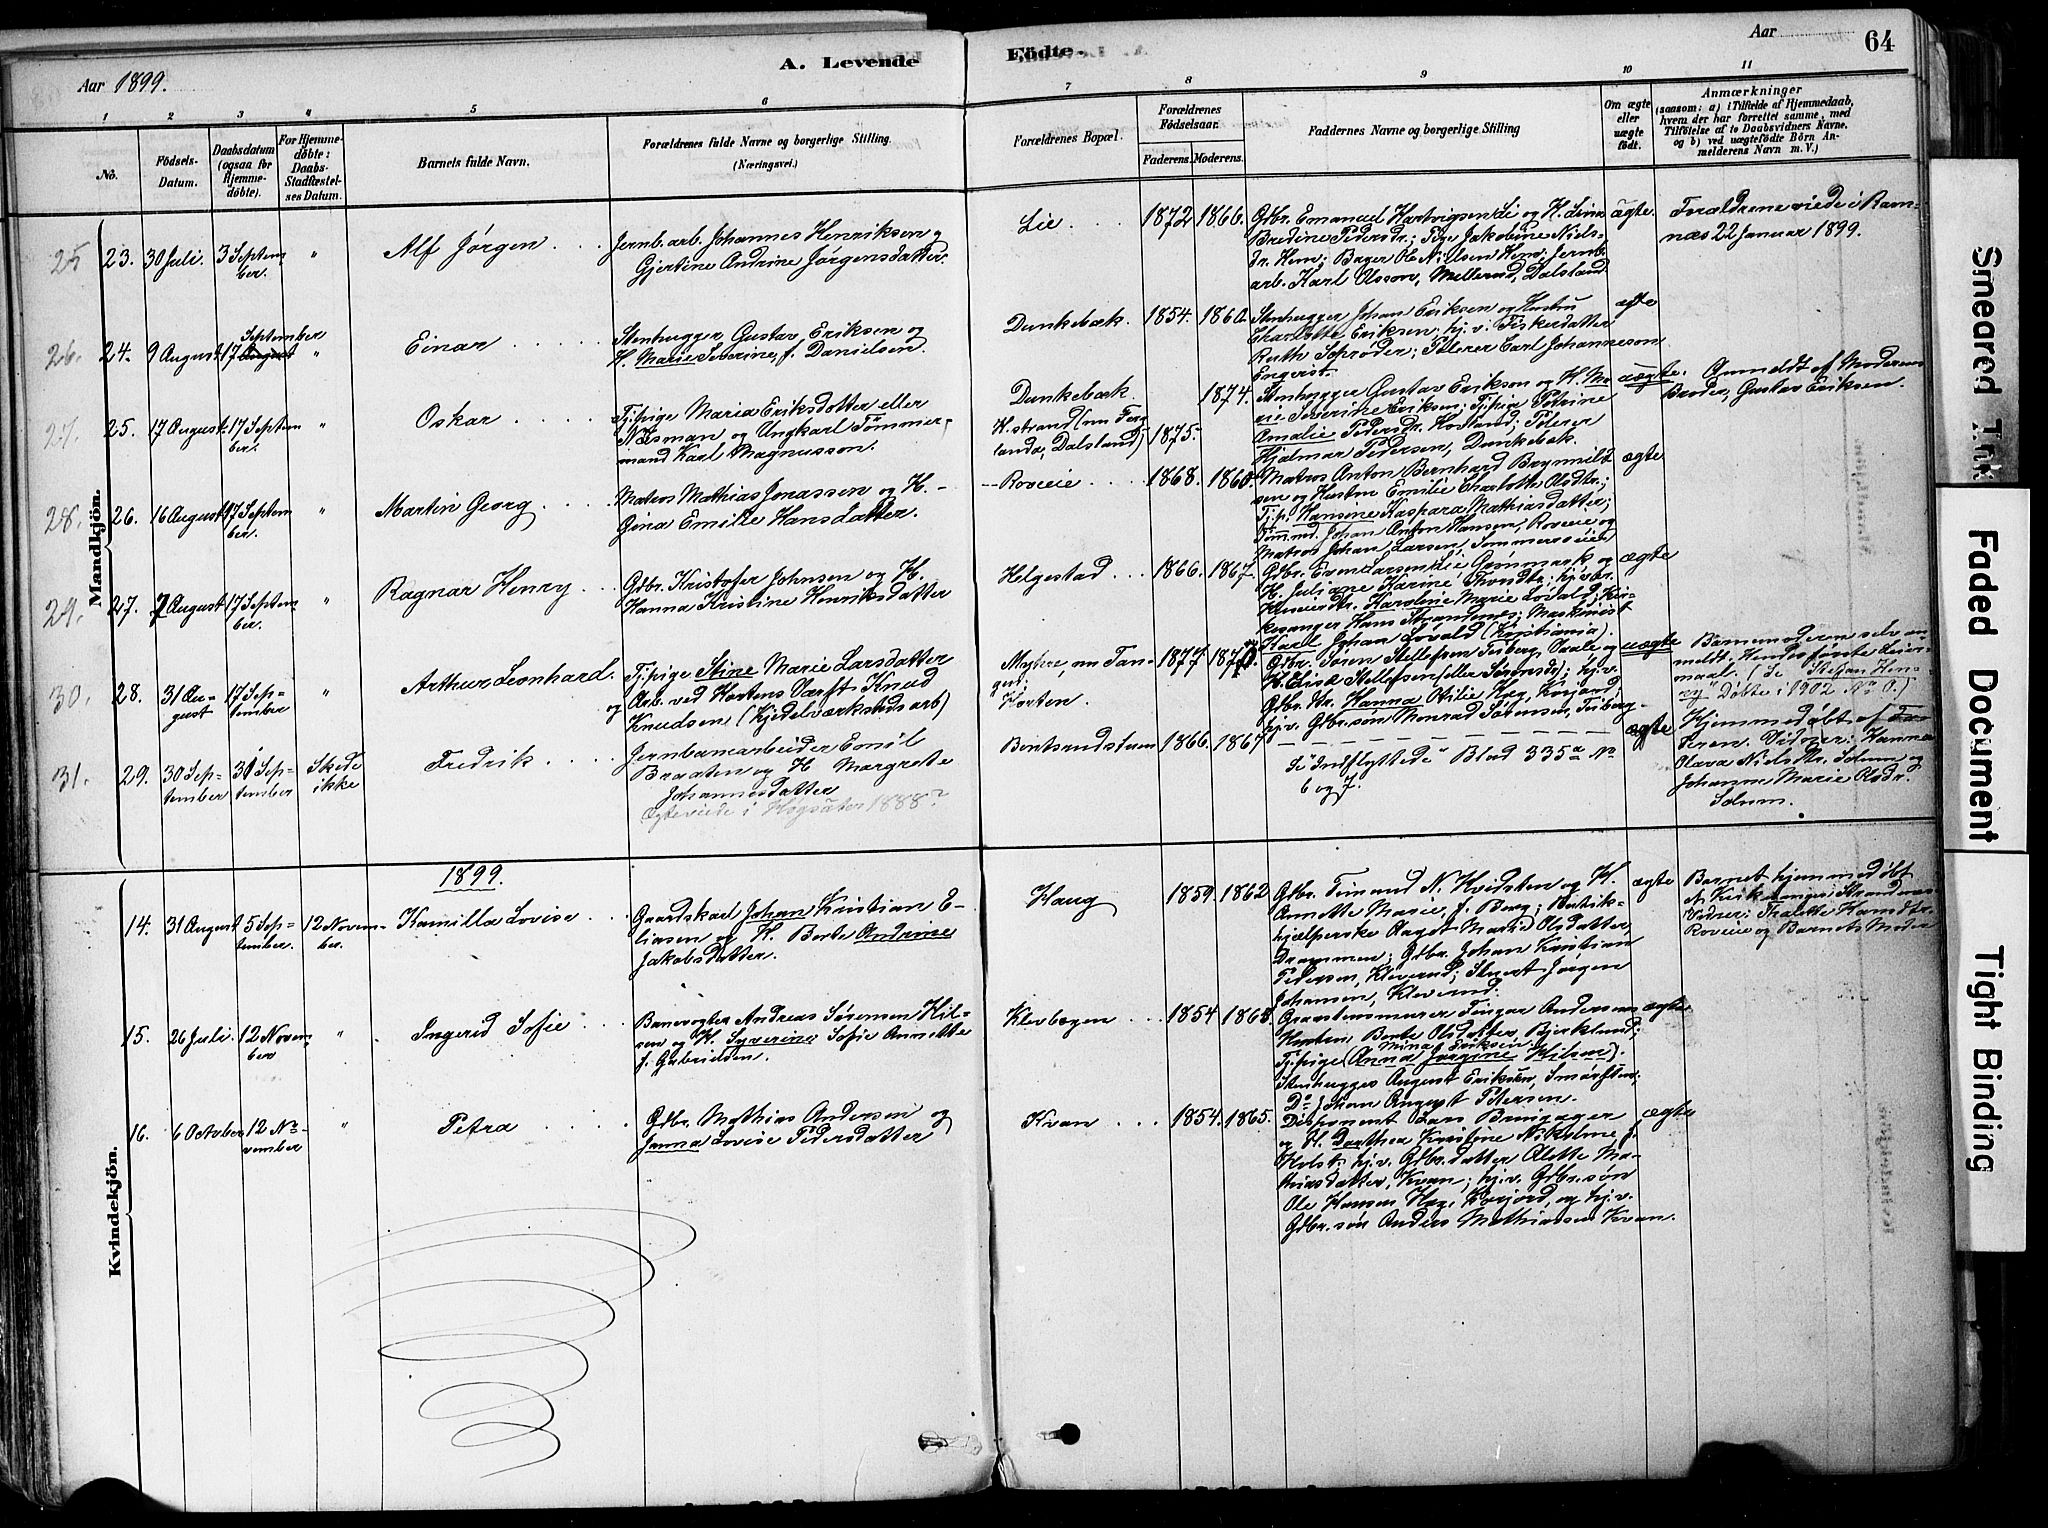 A. Levende
Födte.
Aar
64
Aar 1899.
1
2
3
"
5
6
7
8
9
10
11
No.
Födsels-
Datum.
Daabsdatum
(ogsaa for
Hjemme-
döbte).
For Hjemme-
döbte:
Daabs-
Stadfæstel-
ses Datum.
Barnets fulde Navn.
Forældrenes fulde Navne og borgerlige Stilling.
(Næringsvei.)
Forældrenes Bopæl.
Forældrenes
Födselsaar.
Faderens.
Moderens.
Faddernes Navne og borgerlige Stilling
Om ægte
eller
uægte
födt.
Anmærkninger
(saasom: a) i Tilfælde af Hjemmedaab,
hvem der har forrettet samme, med
Tilföielse af to Daabsvidners Navne.
og b) ved uægtefödte Börn An-
melderens Navn m. V.)
Mandkjön.
25
23.
30 Juli.
3 Septem
ber.
"
Alf Jørgen
Jernb. arb. Johannes Henriksen og
Gjertine Andrine Jørgensdatter.
Lie
1872
1866.
Gdbr. Emanuel Hartvigsen Lie og H. Lina
Bredine Pedersdr.; Pige Jakobine Niels-
dr. Hem; Bager Ole Nilsen Hem; Jernb.
arb. Karl Olsson, Mellerud, Dalsland
ægte.
Forældrene viede i Ram-
næs 22 Januar 1899.
26.
24.
9 August
September
17 August
"
Einar
Stenhugger Gustav Eriksen og
H. Marie Severine, f. Danielsen.
Dunkebæk.
1854.
1860.
Stenhugger Johan Eriksen og Hustru
Charlotte Eriksen; hj. v. Fiskerdatter
Ruth Soprøder; Isterer Carl Johannesson
Engerst.
ægte
27.
25.
17 August.
17 Septem
ber.
"
Oskar
Tj. pige Maria Eriksdotter eller
Næsman og Ungkarl Tömmer-
mand Karl Magnusson.
Dunkebæk
H. strand (nu Fær-
landa, Dalsland)
1875.
1874.
Stenhugger Gustav Erikson og H. Ma-
rie Severine Eriksen; Tj. pige Petrine
Amalie Pedersdr. Hovland;
Hjalmar Pedersen, Dunkebæk.
uægte.
Anmeldt af Moderens
Broder, Gustav Eriksen.
28.
26.
16 August
17 Septem
ber.
"
Martin Georg
Matros Mathias Jonassen og H.
Gina Emilie Hansdatter.
Roveie
1868.
1860.
Matros Anton Bernhard Brynnild-
sen og Hustru Emilie Charlotte Olsdtr.;
Tj. p. Hansine Kaspara Mathiasdatter;
Tömmd. Johan Anton Hansen, Roveie og
Matros Johan Larsen, Sommerseien
ægte
29.
27.
7 August
17 Septem
ber.
"
Ragnar Henry
Gdbr. Kristofer Johnsen og H.
Hanna Kristine Henriksdatter
Helgestad
1866.
1867.
Gdbr. Even Larsen Lie Grønmark og
H. Juliane Karine Throndtr; hj. vær.
Karoline Marie Lovald; Kir-
kesanger Hans Strandenæs; Maskinist
Karl Johan Lovald (Kristiania).
ægte
30.
28.
31 Au-
gust
17 Sep-
tember
"
Arthur Leonhard.
Tj. pige Stine Marie Larsdatter
og Arb. ved Hortens Værft Knud
Knudsen (Kjedelværksteds arb)
nu Tan-
gen.
Horten.
1877
1870.
Gdbr. Søren Stellefsen Friberg, Vaale og
H. Elise Stellefsen (eller Sørensdr); hj. v.
Gdbr. dtr. Hanna Otilie Hæg, Korjord,
hj. v. Gdbr. søn Monrad Sørensen, Friberg.
uægte
Barnemoderen selv an-
meldt; Hendes første Leier-
maal. (Se "Stefan Hen-
ry" Døbte i 1902 No 8.)
31.
29.
30 Sep-
tember
30 Sep-
tember
Skede
ikke
Fredrik
Jernbanearbeider Emil
Braaten og H. Margrete
Johannesdatter
Ægteviede i Högsäter 1888?
Bentsrudstuen
1866.
1867
Se "Indflyttede" Blad 335a No
6 og 7.
ægte
Hjemmedøbt af Fa-
deren. Vidner: Hanna
Olava Nielsdtr. Solum og
Johanne Marie Olsdr.
Solum.
1899.
Kvindekjön.
14.
31 August
5 Sep-
tember.
12 Novem-
ber.
Kamilla Lovise
Gaardskarl Johan Kristian E-
liasen og H. Berte Andrine
Jakobsdatter.
Haug
1859.
1862
Gdbr. Temand N. Kvidsten og H.
Annette Marie f. Berg; Butik-
hjælperske Aagot Marie Olsdatter,
Drammen; Gdbr. Johan Kristian
Pedersen, Kleverud; Skuert Jørgen
Johansen, Kleverud.
ægte
Barnet hjemmedøbt
af Kirkesanger Strandenæs
Vidner: Thalette Hansdtr.
Roveie og Barnets Moder
15.
26 Juli.
12 Novem
ber
"
Ingerid Sofie
Banevogter Andreas Sørensen Hil-
sen og H. Syverine Sofie Annette
f. Gabrielsen.
Klevbogen
1854
1868.
Graastensmurer Fingar Andersen
Hustru Berte Olsdatter, Bjerklund;
Mina Eriksen
Tj. pige (Anna Jørgine Hilsen).
Stenhugger August Eriksen, Smørsten;
Do Johan August Petersen.
ægte
16.
6 October
12 No-
vember
"
Petra
Gdbr. Mathias Andersen og
Janna Lovise Pedersdatter
Kvan
1854.
1865.
Disponent Lars Bruseager
og H. Dorthea Kristine Nikoline f.
Holst; hj. v. Gdbr. datter Alette Ma-
thiasdatter, Kvan; hj. v. Gdbr. søn
Ole Hansen Hæg, Korjord, og hj. v.
Gdbr. søn Anders Mathiassen Kvan.
ægte
Smeared Ink
Faded Document
Tight Binding